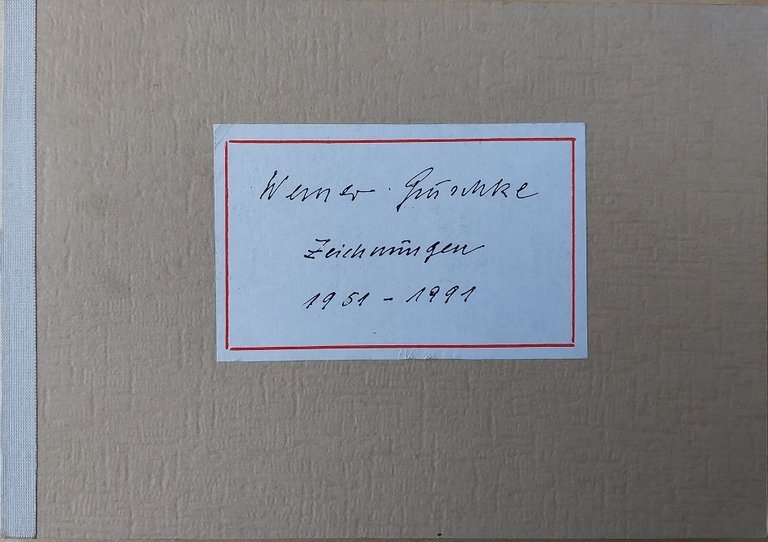 Werner
Zeichnungen
1951 - 1991